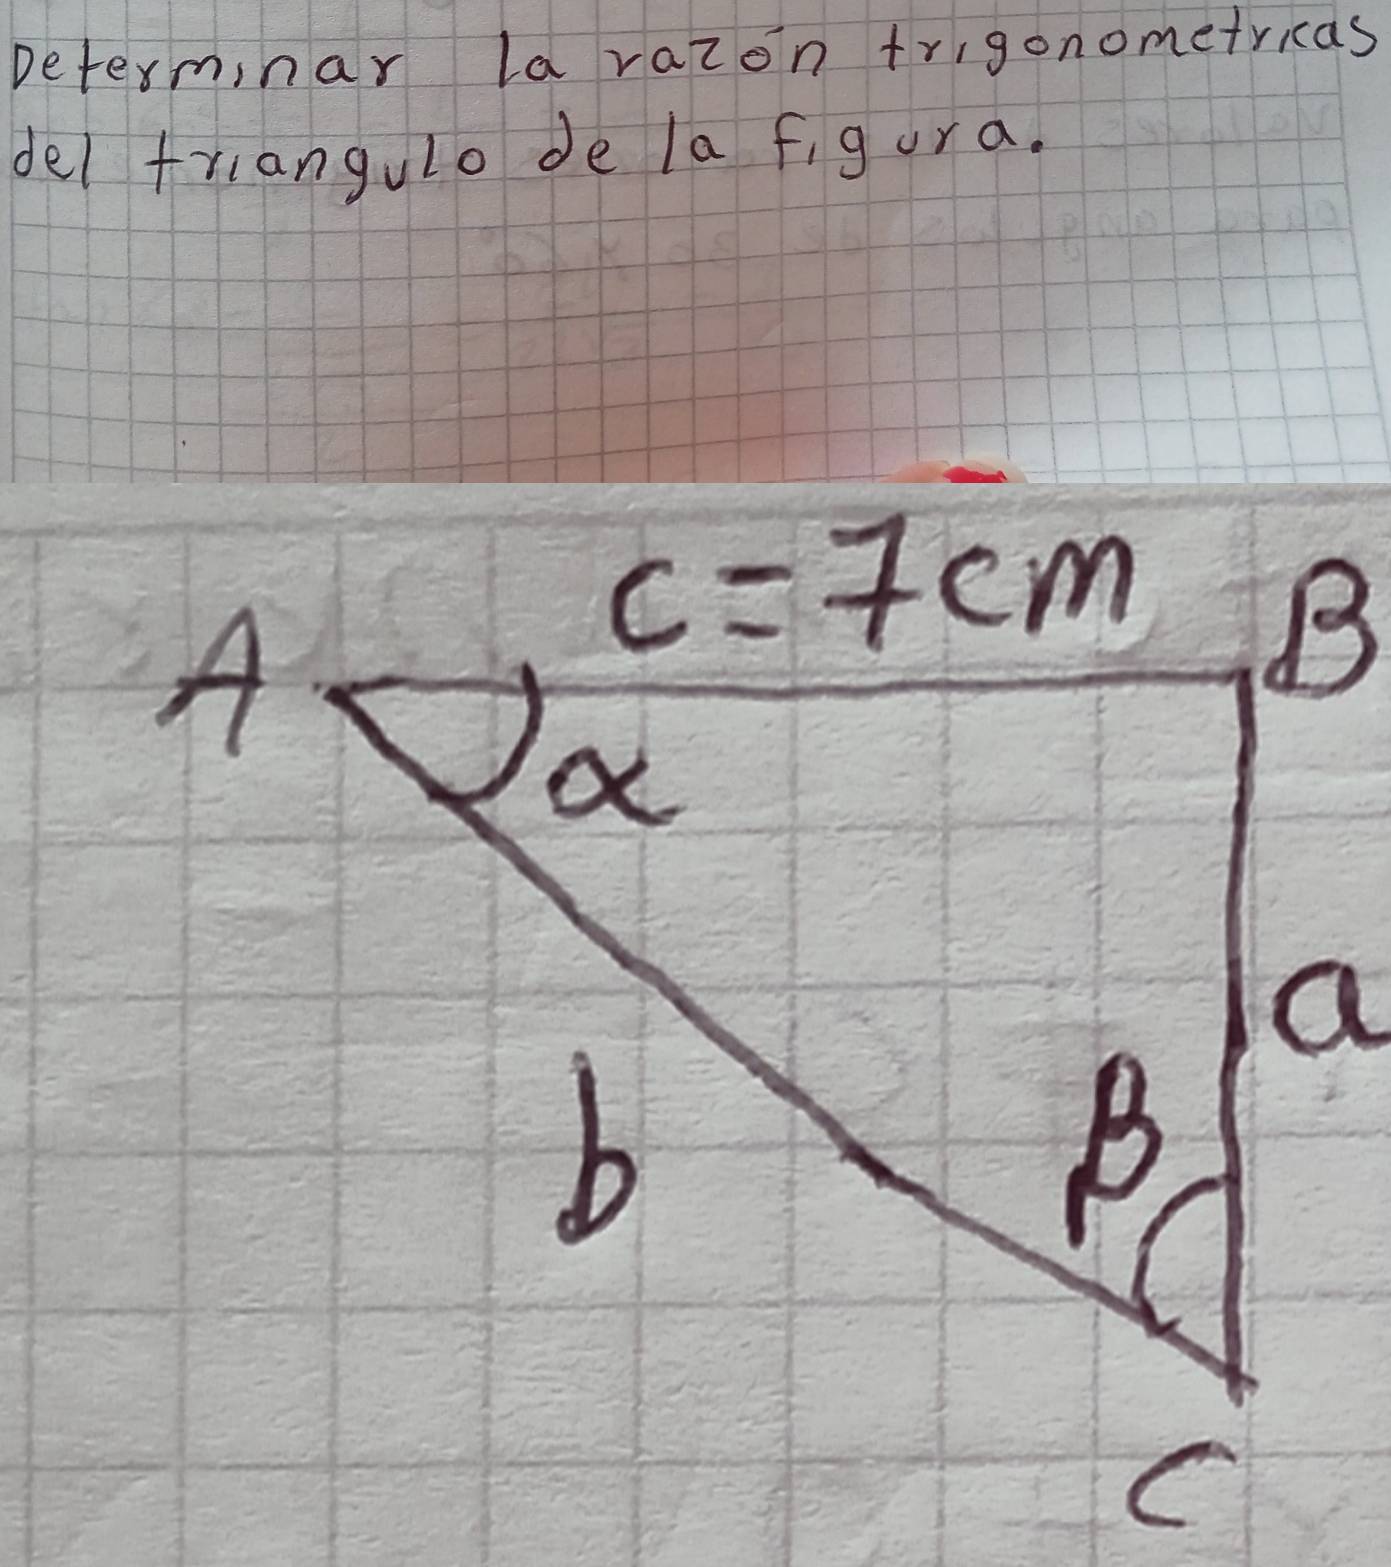 Determinar la razón trigonometricas
del triangulo de la figura.
c=7cm
A
B
α
a
b
β
C